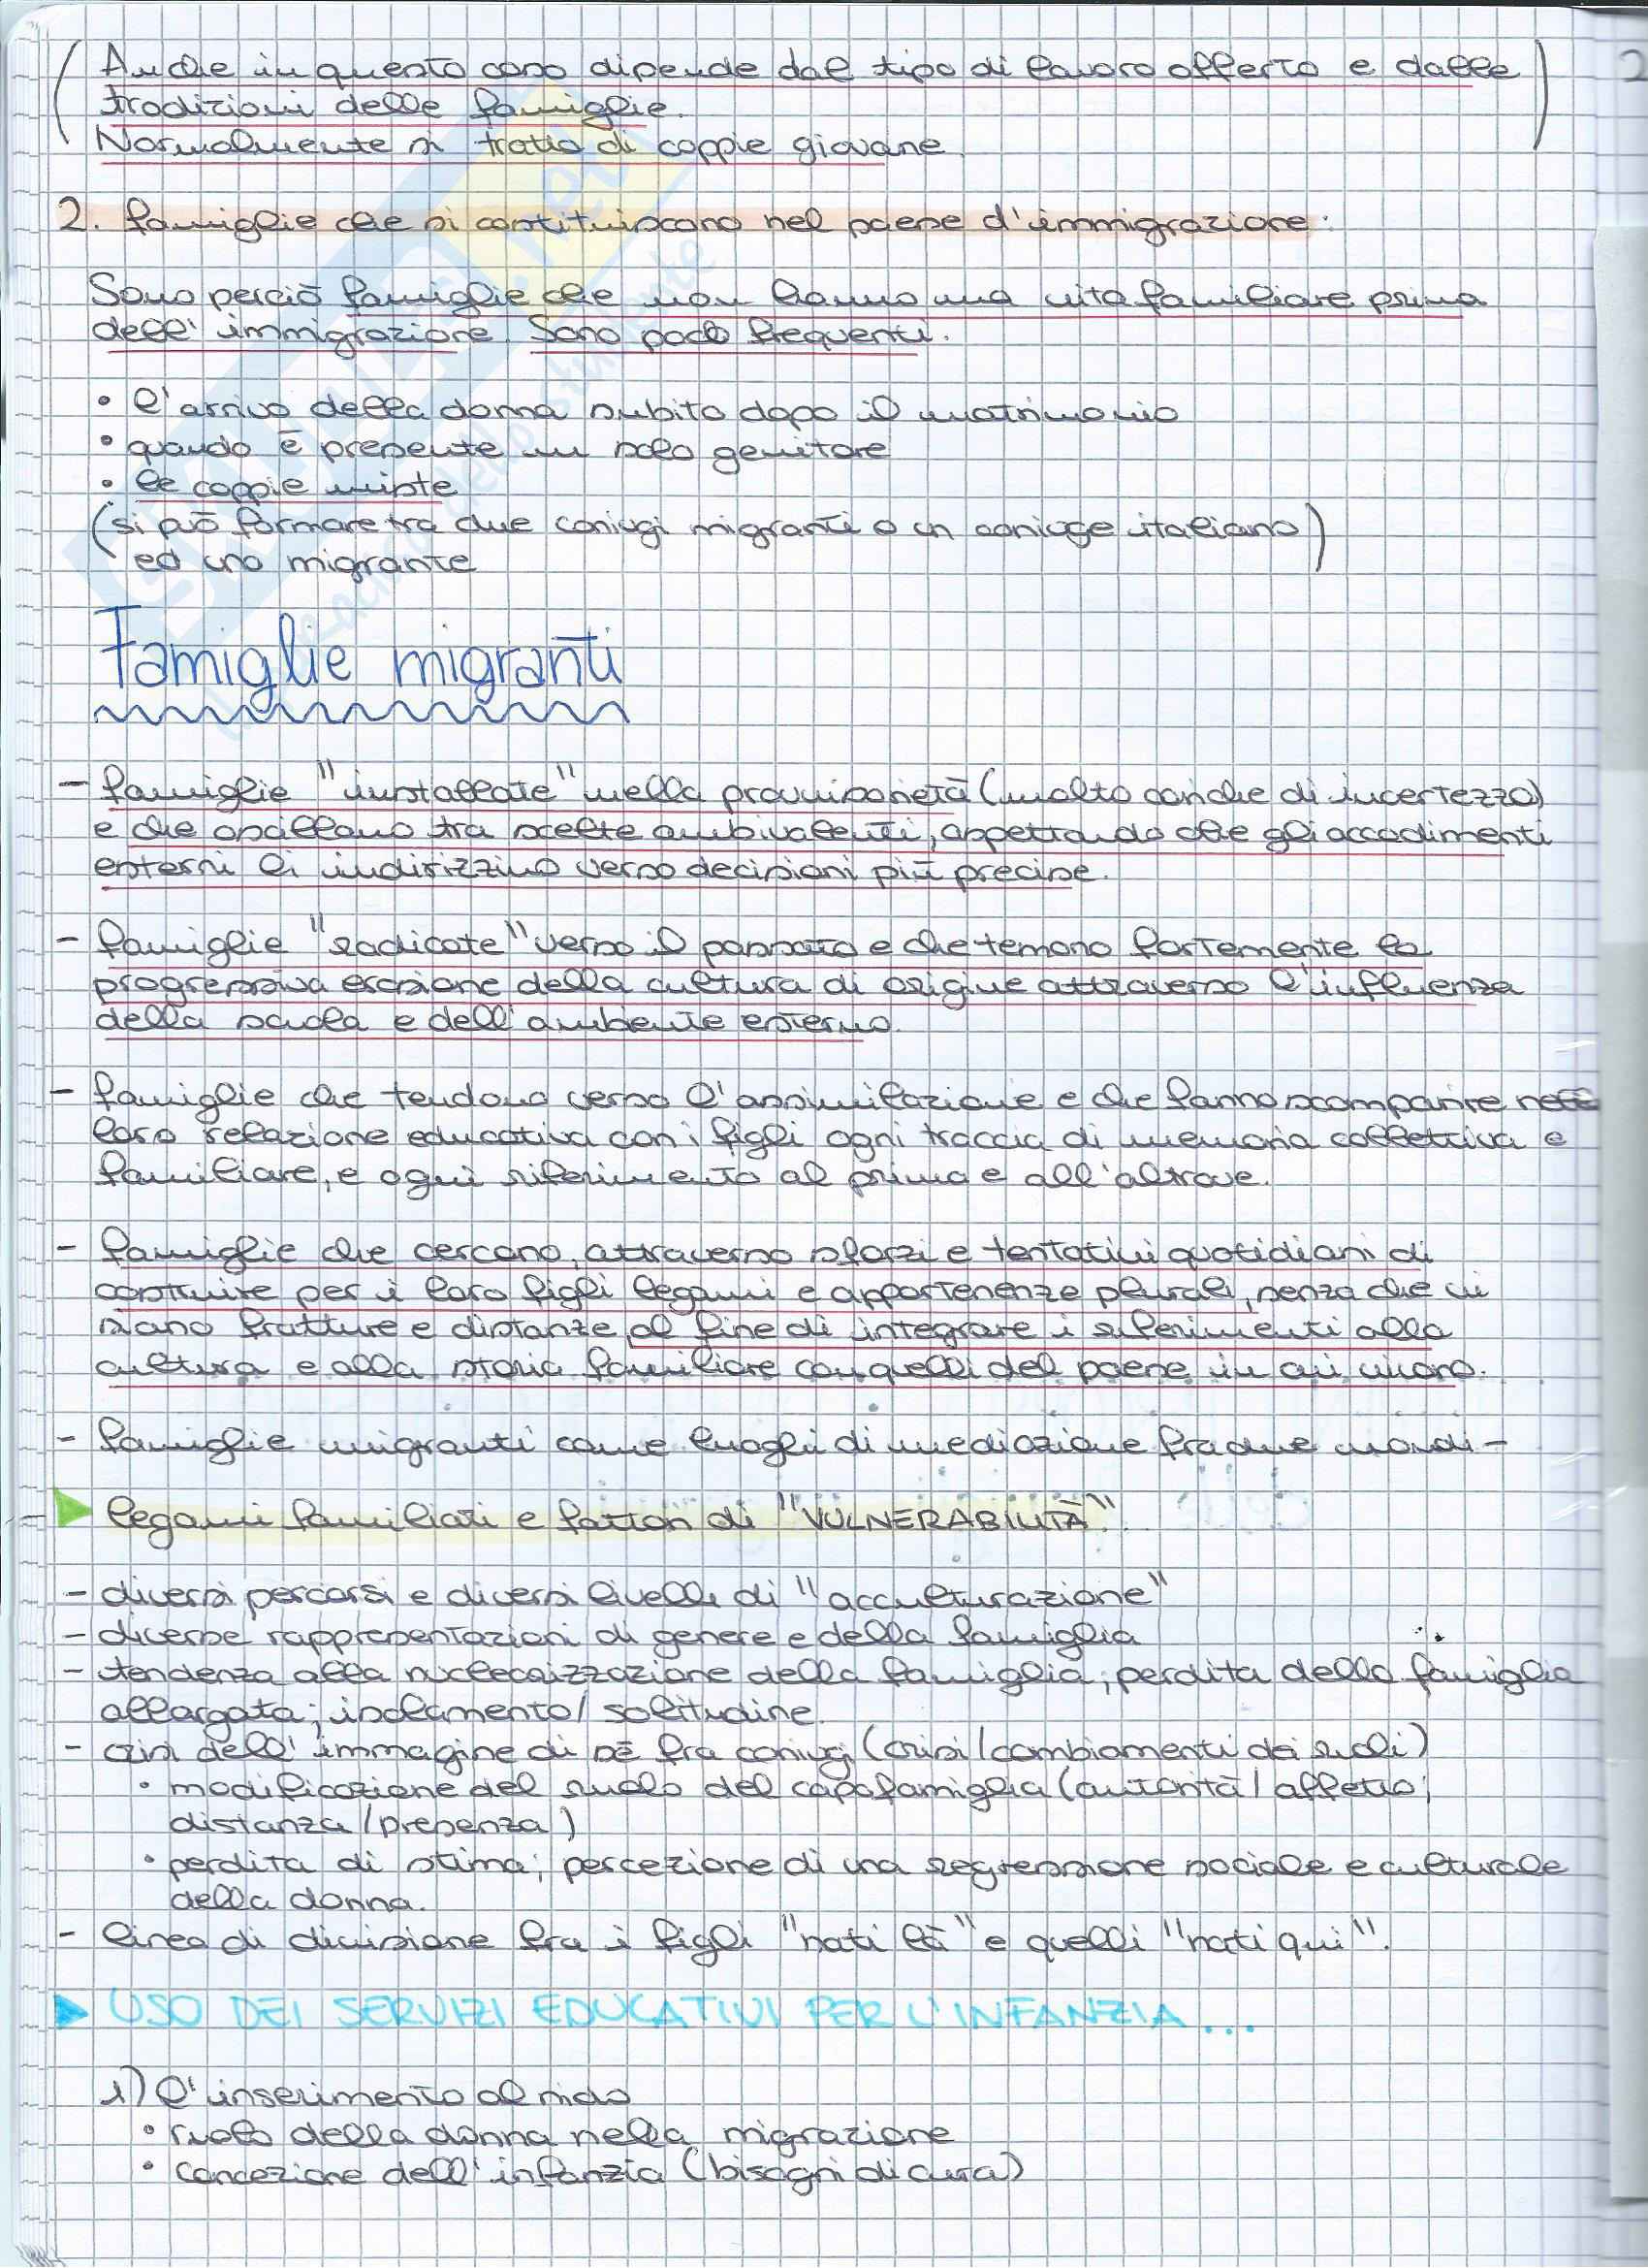 (Anche in questo caso dipende dal tipo di lavoro offerto e dalle)
tradizioni delle famiglie.
Normalmente si tratta di coppie giovane
2. famiglie che si costituiscono nel paese d'immigrazione:
Sono perciò famiglie che non hanno una vita familiare prima
dell'immigrazione. Sono poco frequenti.
• l'arrivo della donna subito dopo il matrimonio
• quando è presente un solo genitore
• le coppie miste
(si può formare tra due coniugi migranti o un coniuge italiano)
ed uno migrante
Famiglie migranti
- famiglie "installate" nella provvisorietà (molto cariche di incertezza)
e che oscillano tra scelte ambivalenti, aspettando che gli accadimenti
esterni li indirizzino verso decisioni più precise.
- famiglie "radicate" verso il passato e che temono fortemente la
progressiva erosione della cultura di origine attraverso l'influenza
della scuola e dell'ambiente esterno.
- famiglie che tendono verso l'assimilazione e che fanno scomparire nella
loro relazione educativa con i figli ogni traccia di memoria collettiva e
familiare, e ogni riferimento al prima e all'altrove.
- famiglie che cercano, attraverso sforzi e tentativi quotidiani di
costruire per i loro figli legami e appartenenze plurali, senza che vi
siano fratture e distanze, al fine di integrare i riferimenti alla
cultura e alla storia familiare con quelli del paese in cui vivono.
- famiglie migranti come luoghi di mediazione fra due mondi -
legami familiari e fattori di "VULNERABILITÀ"
- diversi percorsi e diversi livelli di "acculturazione"
- diverse rappresentazioni di genere e della famiglia
- tendenza alla nuclearizzazione della famiglia; perdita della famiglia
allargata; isolamento/solitudine.
- crisi dell'immagine di sé fra coniugi (crisi/cambiamenti dei ruoli)
• modificazione del ruolo del capofamiglia (autorità/affetto;
distanza/presenza)
• perdita di stima; percezione di una regressione sociale e culturale
della donna.
- linea di divisione fra i figli "nati là" e quelli "nati qui".
USO DEI SERVIZI EDUCATIVI PER L'INFANZIA...
1) l'inserimento al nido
• ruolo della donna nella migrazione
• concezione dell'infanzia (bisogni di cura)